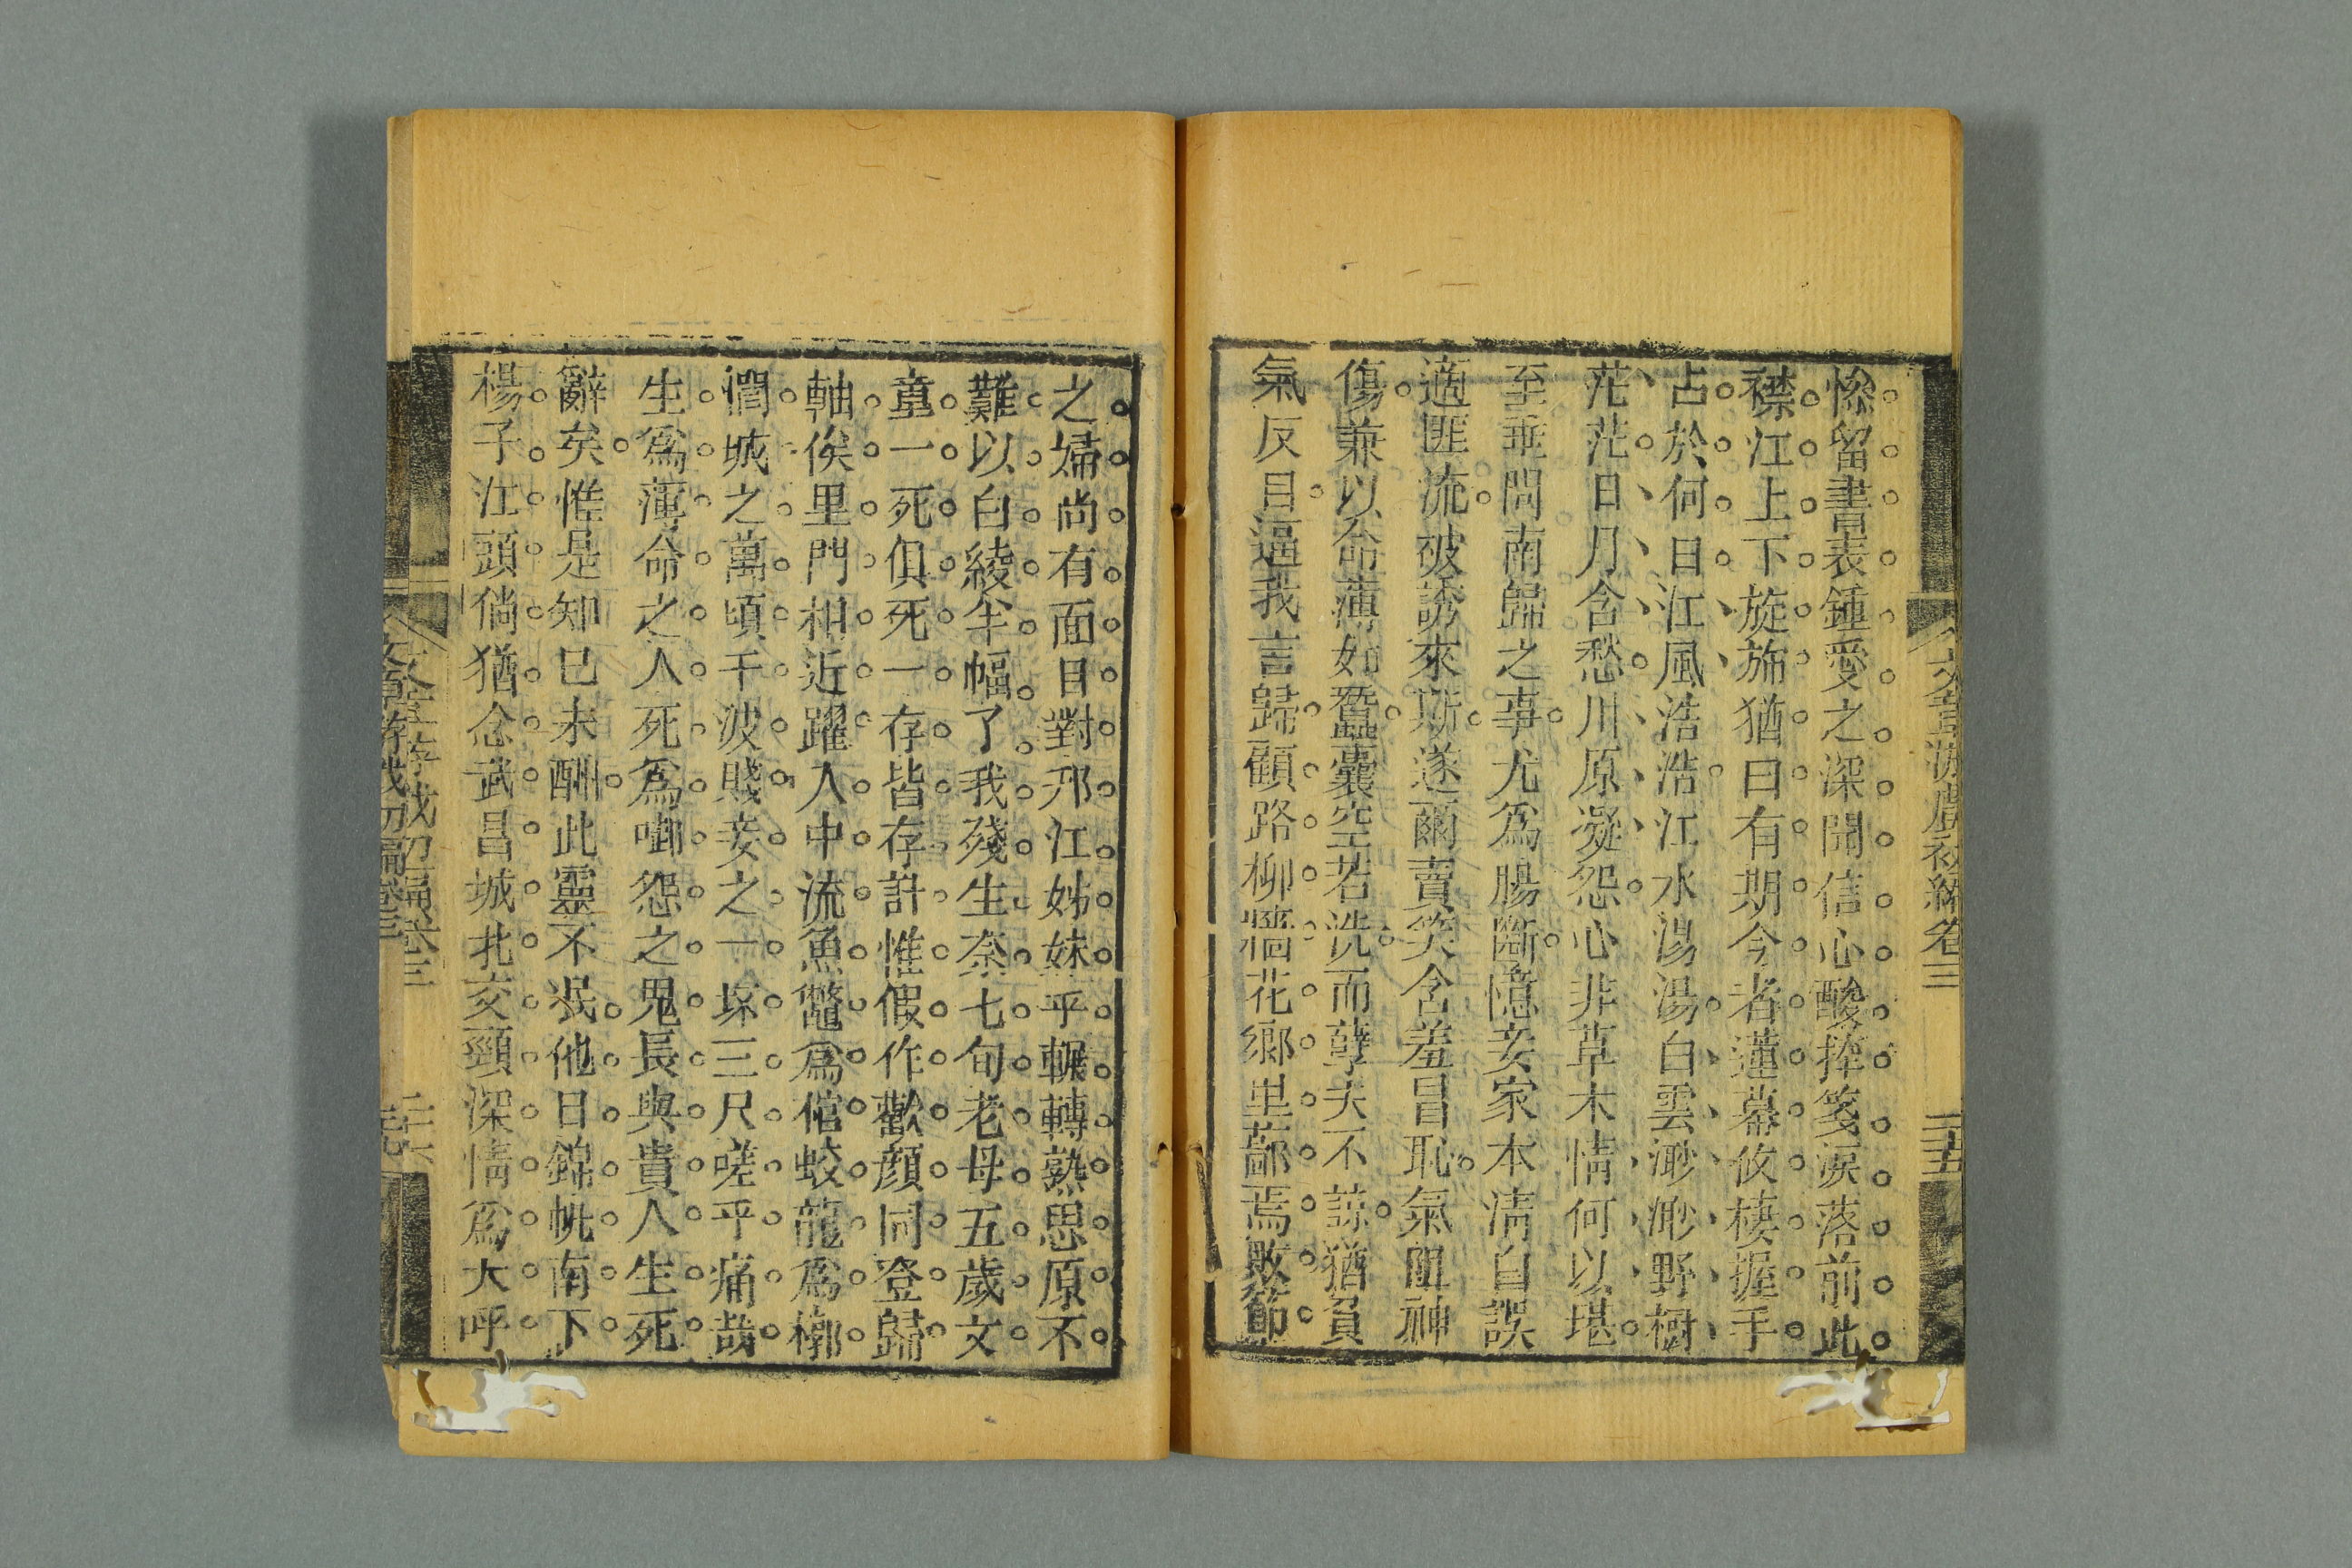 文章游戲初編卷三
二十五
惨留書表鍾愛之深開信心酸捧箋淚落前此
襟江上下旋斾猶曰有期今者蓮幕攸棲握手
占於何日江風浩浩江水湯湯白雲渺渺野樹
茫茫日月含愁川原凝怨心非草木情何以堪
至垂問南歸之事尤爲腸斷憶妾家本清自誤
適匪流被誘來斯遂爾賣笑含羞冒恥氣阻神
傷兼以命薄如蠶囊空若洗而孽夫不諒猶負
氣反目逼我言歸顧路柳牆花鄉里鄙焉敗節
之婦尚有面目對邗江姊妹乎輾轉熟思原不
難以白綾半幅了我殘生奈七旬老母五歲文
童一死俱死一存皆存計惟假作歡顏同登歸
軸俟里門相近躍入中流魚鼈爲倌蛟龍爲槨
潤城之萬頃千波賤妾之一抔三尺嗟乎痛哉
生爲薄命之人死爲啣怨之鬼長與貴人生死
辭矣惟是知己未酬此靈不泯他日錦帆南下
楊子江頭倘猶念武昌城北交頸深情爲大呼
二十六